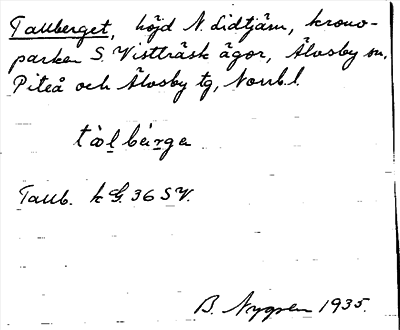 Tallberget, höjd N. Lidtjärn, krono-
parken S. Vistträsk ägor, Älvsby sn,
Piteå och Älvsby tg, Norrb. l.
tàl bæ̀rge
Tallb. k G. 36 SV.
B. Nygren 1935.